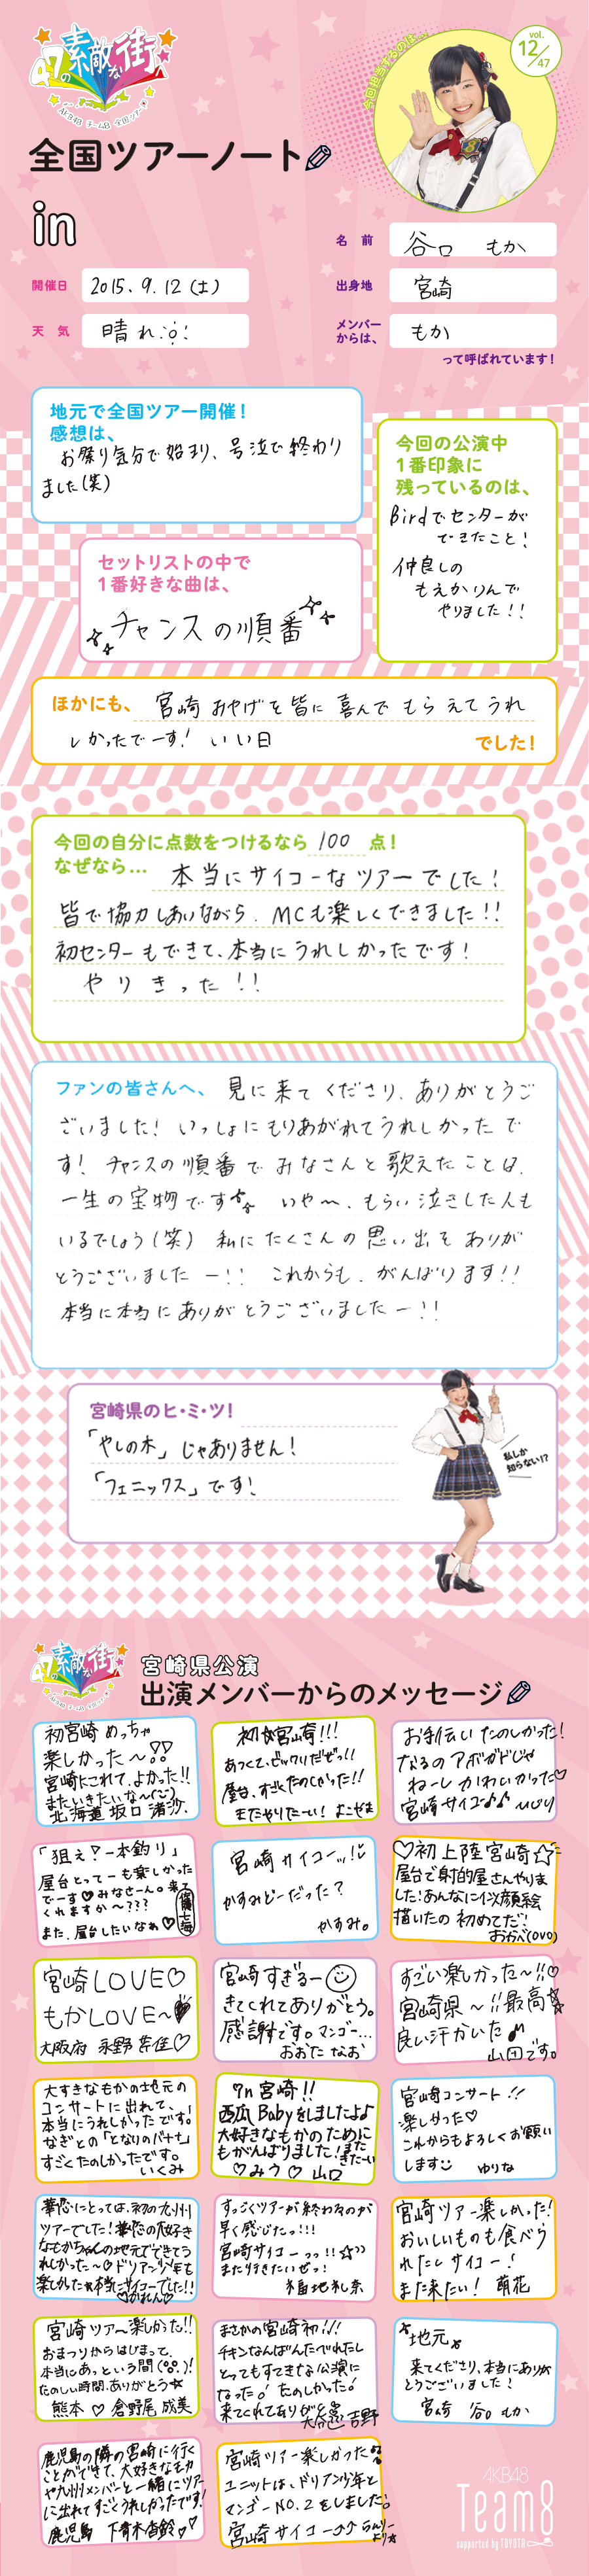 47の素敵な街へ
AKB48 チーム8 全国ツアー
今回担当するのは…
vol.
12/47
全国ツアーノート
in
名 前 谷口 もか
開催日 2015.9.12(土)
出身地 宮崎
天 気 晴れ
メンバーからは、 もか
って呼ばれています!
地元で全国ツアー開催!
感想は、
お祭り気分で始まり、号泣で終わり
ました(笑)
今回の公演中
1番印象に
残っているのは、
Birdでセンターが
できたこと!
仲良しの
もえかりんで
やりました!!
セットリストの中で
1番好きな曲は、
チャンスの順番
ほかにも、 宮崎おやげを皆に喜んでもらえてうれ
しかったでーす! いい日 でした!
今回の自分に点数をつけるなら 100 点!
なぜなら… 本当にサイコーなツアーでした!
皆で協力しあいながら、MCも楽しくできました!!
初センターもできて、本当にうれしかったです!
やりきった!!
ファンの皆さんへ、 見に来てくださり、ありがとうご
ざいました! いっしょにもりあがれてうれしかったで
す! チャンスの順番でみなさんと歌えたことは、
一生の宝物です いや〜、もらい泣きした人も
いるでしょう(笑) 私にたくさんの思い出をありが
とうございましたー!! これからも、がんばります!!
本当に本当にありがとうございましたー!!
宮崎県のヒ・ミ・ツ!
「やしの木」じゃありません!
「フェニックス」です!
私しか
知らない!?
47の素敵な街へ
AKB48 チーム8 全国ツアー
宮崎県公演
出演メンバーからのメッセージ
初宮崎めっちゃ
楽しかった〜!!
宮崎にこれて、よかった!!
またいきたいな〜
北海道 坂口渚沙.
初♡宮崎!!!
あつくて、ビックリだぜっ!!
屋台、すごくたのしかった!!
またやりたーい! よこやま
お手伝いたのしかった!
なるのアボガドじゃ
ねーしかわいかった♡
宮崎サイコー♪♪
「狙え?一本釣り」
屋台とってーも楽しかった
でーす♡みなさーん。来て
くれますか〜???
また、屋台したいなぁ♡
佐藤七海
宮崎サイコーッ!!
かすみどーだった?
かすみ。
♡初上陸宮崎☆
屋台で射的屋さんやりま
した!あんなに似顔絵
描いたの初めてだ!
おかべ(OVO)
宮崎LOVE♡
もかLOVE〜
大阪府 永野芹佳♡
宮崎すぎるー
きてくれてありがとう。
感謝です。マンゴー…
おおたなお
すごい楽しかった〜!!♡
宮崎県〜!!最高
良い汗かいた♪
山田です。
大すきなもかの地元の
コンサートに出れて、
本当にうれしかったです。
なぎとの「となりのバナナ」
すごくたのしかったです。
いくみ
in 宮崎!!
西瓜Babyをしましたよ♪
大好きなもかのために
もがんばりました!また
きたーい
♡みう♡ 山口
宮崎コンサート!!
楽しかった♡
これからもよろしくお願い
します
ゆりな
華恋にとっては、初の九州
ツアーでした!華恋の大好き
なもかちゃんの地元でできてう
れしかった〜♡ドリアン少年も
楽しかった本当にサイコーでした!!
♡かれん♡
すっごくツアーが終わるのが
早く感じたっ!!!
宮崎サイコーっっ!!☆
また行きたいぜっ!
福地礼奈
宮崎ツアー楽しかった!
おいしいものも食べら
れたしサイコー!
また来たい! 萌花
宮崎ツアー楽しかった!!
おまつりからはじまって、
本当にあっという間(°°)!
たのしい時間、ありがとう☆
熊本♡倉野尾成美
まさかの宮崎初!!!
チキンなんばんたべれたし
とってもすてきな公演に
なった! たのしかった!
来てくれてありがとう
大分県 吉野
地元
来てくださり、本当にありが
とうございました!
宮崎 谷口もか
鹿児島の隣の宮崎に行く
ことができて、大好きなもか
や九州メンバーと一緒にツアー
に出れてすごくうれしかったです!
鹿児島 下青木香鈴
宮崎ツアー楽しかった
ユニットは、ドリアン少年と
マンゴーNO.2をしました!
宮崎サイコー♪♪ らんりー
より☆
AKB48
Team8
supported by TOYOTA